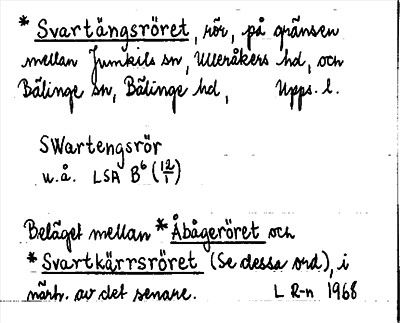 * Svartängsröret, rör, på gränsen
mellan Jumkils sn, Ulleråkers hd, och
Bälinge sn, Bälinge hd, Upps. l.
SWartengsrör
u.å. LSA B⁶ (12/1)
Beläget mellan * Åbågeröret och
* Svartkärrsröret (Se dessa ord), i
närh. av det senare. L R-n 1968